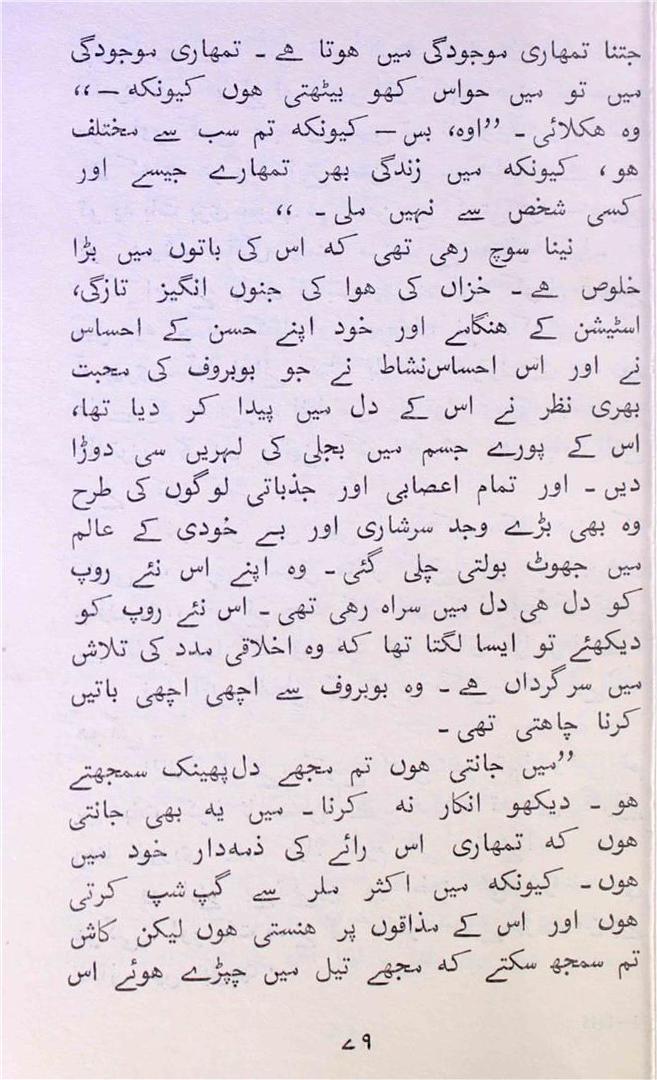 جتنا تمھاری موجودگی میں ھوتا ھے ـ تمھاری موجودگی
میں تو میں حواس کھو بیٹھتی ھوں کیونکہ — ،،
وہ ھکلائی ـ ”اوہ، بس — کیونکہ تم سب سے مختلف
ھو ، کیونکہ میں زندگی بھر تمھارے جیسے اور
کسی شخص سے نہیں ملی ـ ،،
نینا سوچ رھی تھی کہ اس کی باتوں میں بڑا
خلوص ھے ـ خزاں کی ھوا کی جنوں انگیز تازگی،
اسٹیشن کے ھنگامے اور خود اپنے حسن کے احساس
نے اور اس احساس نشاط نے جو بوبروف کی محبت
بھری نظر نے اس کے دل میں پیدا کر دیا تھا،
اس کے پورے جسم میں بجلی کی لہریں سی دوڑا
دیں ـ اور تمام اعصابی اور جذباتی لوگوں کی طرح
وہ بھی بڑے وجد سرشاری اور بے خودی کے عالم
میں جھوٹ بولتی چلی گئی ـ وہ اپنے اس نئے روپ
کو دل ھی دل میں سراہ رھی تھی ـ اس نئے روپ کو
دیکھئے تو ایسا لگتا تھا کہ وہ اخلاقی مدد کی تلاش
میں سرگرداں ھے ـ وہ بوبروف سے اچھی اچھی باتیں
کرنا چاھتی تھی ـ
”میں جانتی ھوں تم مجھے دل پھینک سمجھتے
ھو ـ دیکھو انکار نہ کرنا ـ میں یہ بھی جانتی
ھوں کہ تمھاری اس رائے کی ذمہ دار خود میں
ھوں ـ کیونکہ میں اکثر ملر سے گپ شپ کرتی
ھوں اور اس کے مذاقوں پر ھنستی ھوں لیکن کاش
تم سمجھ سکتے کہ مجھے تیل میں چپڑے ھوئے اس
۷۹